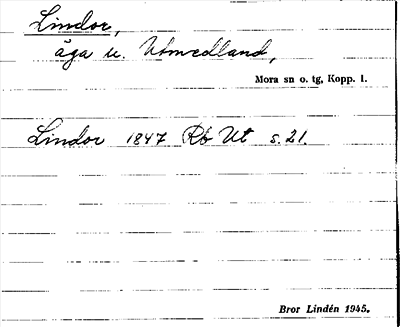 Lindor,
äga u. Utmedland,
Mora sn o. tg, Kopp. l.
Lindor 1847 Rb Ut s. 21.
Bror Lindén 1945.